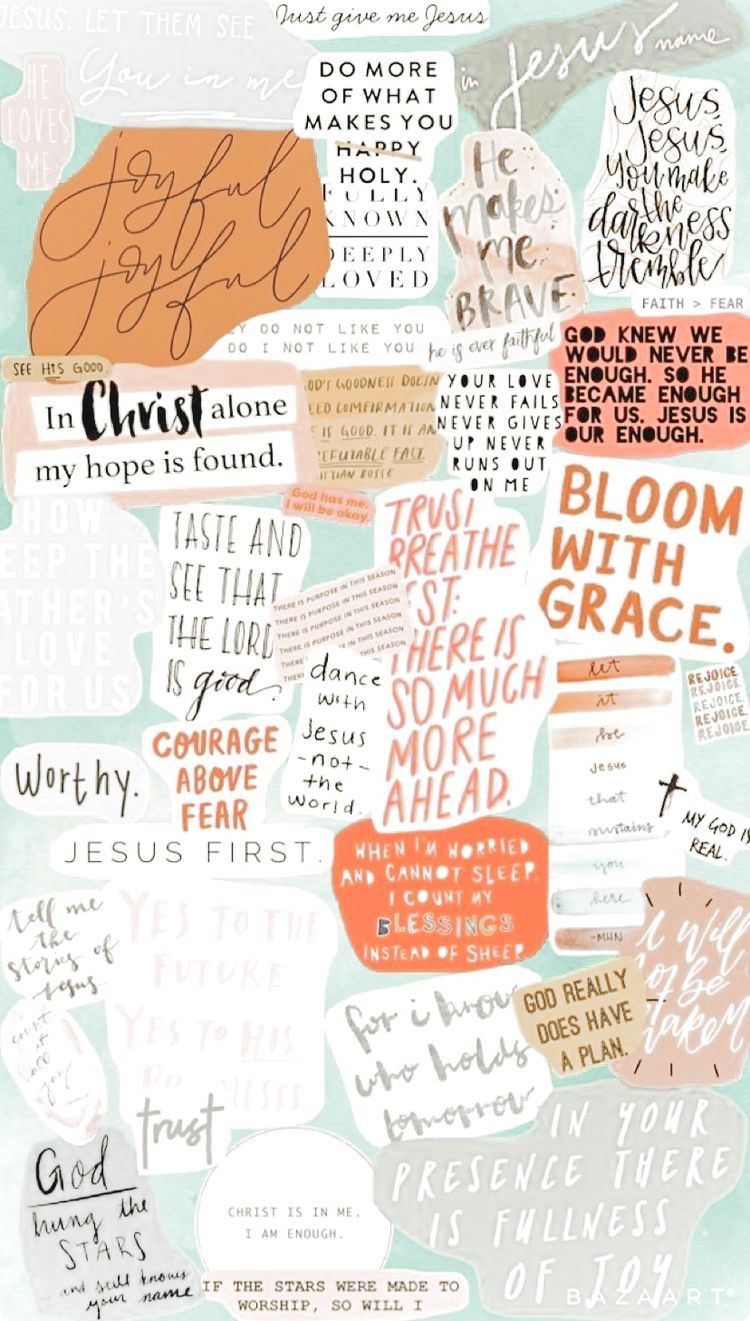 JESUS, LET THEM SEE
You in me
Just give me Jesus
in Jesus name
HE
LOVES
ME
DO MORE
OF WHAT
MAKES YOU
HAPPY
HOLY.
FULLY
KNOWN
DEEPLY
LOVED
He
makes
me
BRAVE.
Jesus,
Jesus,
you make
the
darkness
tremble
joyful
joyful
FAITH > FEAR
DO NOT LIKE YOU
DO I NOT LIKE YOU
he is ever faithful
GOD KNEW WE
WOULD NEVER BE
ENOUGH. SO HE
BECAME ENOUGH
FOR US. JESUS IS
OUR ENOUGH.
SEE HIS GOOD.
In Christ alone
my hope is found.
OD'S GOODNESS DOESN
ED COMFIRMATION
IS GOOD. IT IS AN
EFUTABLE FACT
YOUR LOVE
NEVER FAILS
NEVER GIVES
UP NEVER
RUNS OUT
ON ME
God has me,
I will be okay.
HOW
EEP THE
ATHER'S
LOVE
FOR US
TASTE AND
SEE THAT
THE LORD
IS good.
THERE IS PURPOSE IN THIS SEASON
THERE IS PURPOSE IN THIS SEASON
THERE IS PURPOSE IN THIS SEASON
THERE IS PURPOSE IN THIS SEASON
THERE
SEASON
TRUST
BREATHE
EST:
THERE IS
SO MUCH
MORE
AHEAD.
BLOOM
WITH
GRACE.
dance
with
Jesus
-not-
the
world.
let
it
be
Jesus
that
sustains
you
here
-MHN
REJOICE.
REJOICE.
REJOICE.
REJOICE.
REJOICE.
Worthy.
COURAGE
ABOVE
FEAR
MY GOD IS
REAL.
JESUS FIRST.
WHEN I'M WORRIED
AND CANNOT SLEEP.
I COUNT MY
BLESSINGS
INSTEAD OF SHEEP.
tell me
the
stories of
Jesus
YES TO THE
FUTURE
YES TO HIS
PROMISES
I will
not be
shaken
for i know
who holds
tomorrow
GOD REALLY
DOES HAVE
A PLAN.
count
it
all
joy
trust
God
hung the
STARS
and still knows
your name
CHRIST IS IN ME.
I AM ENOUGH.
IN YOUR
PRESENCE THERE
IS FULLNESS
OF JOY
IF THE STARS WERE MADE TO
WORSHIP, SO WILL I
BAZAART